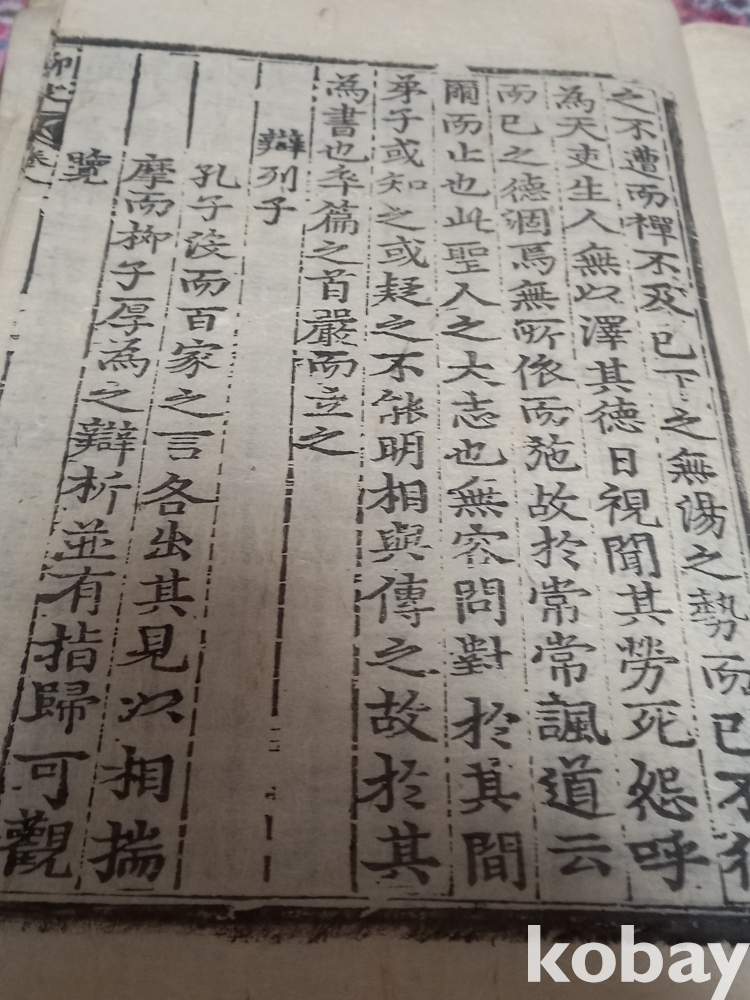 之不遭而禪不及已下之無湯之勢而已不
為天吏生人無以澤其德日視聞其勞死怨呼
而已之德涸焉無所依而施故於常常諷道云
爾而止也此聖人之大志也無容問對於其間
弟子或知之或疑之不能明相與傳之故於其
為書也卒篇之首嚴而立之
辯列子
孔子沒而百家之言各出其見以相揣
摩而柳子厚為之辯析並有指歸可觀
覽
kobay